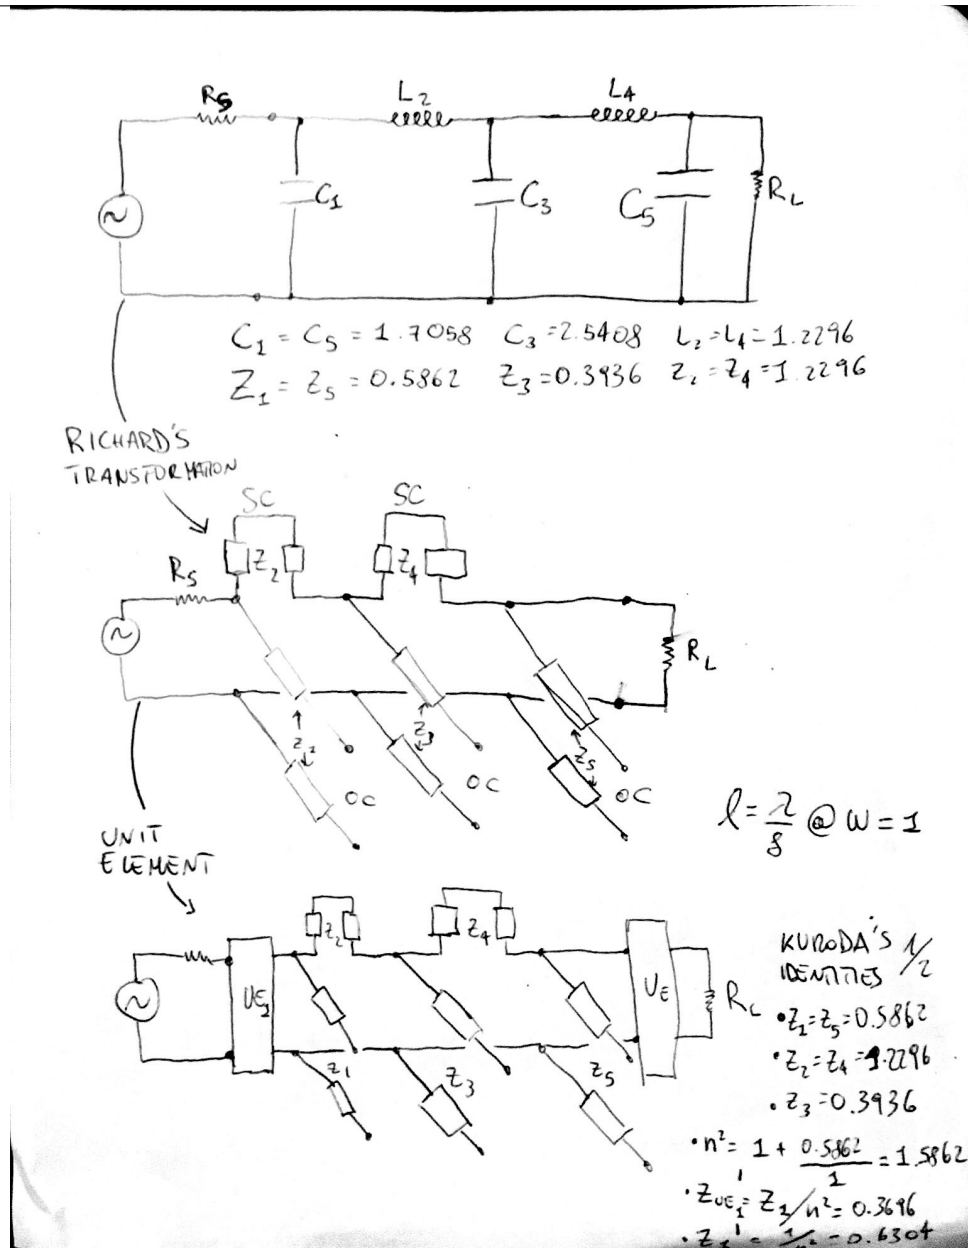 R_S L_2 L_4
C_1 C_3 C_5 R_L
C_1 = C_5 = 1.7058 C_3 = 2.5408 L_2 = L_4 = 1.2296
Z_1 = Z_5 = 0.5862 Z_3 = 0.3936 Z_2 = Z_4 = 1.2296
RICHARD'S
TRANSFORMATION
SC SC
R_S Z_2 Z_4
R_L
Z_3 Z_5
OC OC OC
l = λ/8 @ W = 1
UNIT
ELEMENT
Z_2 Z_4
UE_1 UE R_L
Z_1 Z_3 Z_5
KURODA'S 1/2
IDENTITIES
• Z_1 = Z_5 = 0.5862
• Z_2 = Z_4 = 1.2296
• Z_3 = 0.3936
• n² = 1 + 0.5862/1 = 1.5862
• Z_UE_1' = Z_1/n² = 0.3696